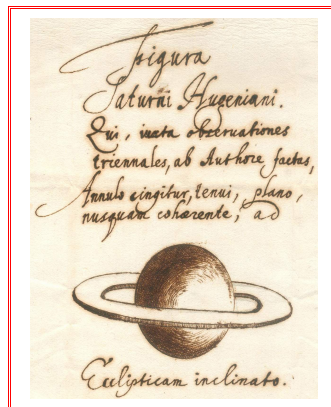 Figura
Saturni Hugeniani.
Qui, iuxta obseruationes
triennales, ab Authore factas,
Annulo cingitur, tenui, plano,
nusquam cohærente, ad
Ecclipticam inclinato.